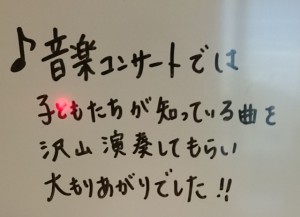 ♪音楽コンサートでは
子どもたちが知っている曲を
沢山演奏してもらい
大もりあがりでした!!